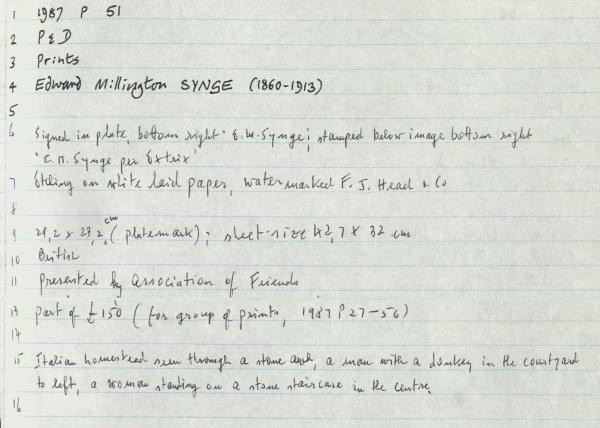 1 1987 P 51
2 P & D
3 Prints
4 Edward Millington SYNGE (1860-1913)
5
6 Signed in plate, bottom right "E.M. Synge; stamped below image bottom right
"E.M. Synge per Extrix"
7 Etching on white laid paper, watermarked F. J. Head & Co
8
9 29,2 x 23,2 cm (platemark); sheet-size 42,7 x 32 cm
10 British
11 presented by Association of Friends
13 part of £150 (for group of prints, 1987 P 27-56)
14
15 Italian homestead seen through a stone arch, a man with a donkey in the courtyard
to left, a woman standing on a stone staircase in the centre.
16